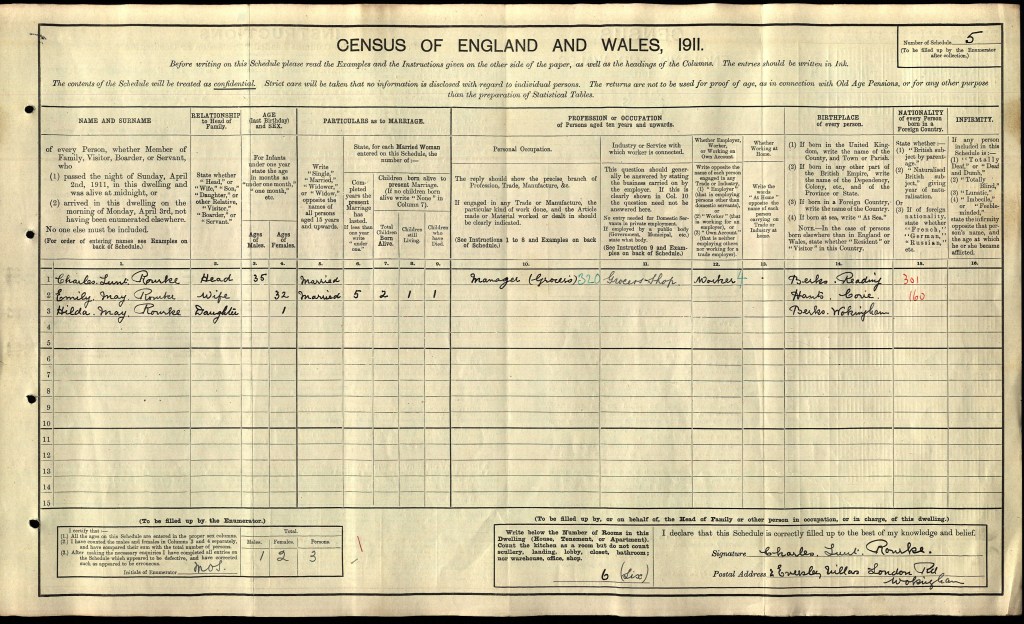 CENSUS OF ENGLAND AND WALES, 1911.
Number of Schedule 5
(To be filled up by the Enumerator
after collection.)
Before writing on this Schedule please read the Examples and the Instructions given on the other side of the paper, as well as the headings of the Columns. The entries should be written in Ink.
The contents of the Schedule will be treated as confidential. Strict care will be taken that no information is disclosed with regard to individual persons. The returns are not to be used for proof of age, as in connection with Old Age Pensions, or for any other purpose
than the preparation of Statistical Tables.
NAME AND SURNAME
of every Person, whether Member of
Family, Visitor, Boarder, or Servant,
who
(1) passed the night of Sunday, April
2nd, 1911, in this dwelling and
was alive at midnight, or
(2) arrived in this dwelling on the
morning of Monday, April 3rd, not
having been enumerated elsewhere.
No one else must be included.
(For order of entering names see Examples on
back of Schedule.)
RELATIONSHIP
to Head of
Family.
State whether
"Head," or
"Wife," "Son,"
"Daughter," or
other Relative,
"Visitor,"
"Boarder," or
"Servant."
AGE
(last Birthday)
and SEX.
For Infants
under one year
state the age
in months as
"under one month,"
"one month,"
etc.
Ages
of
Males.
Ages
of
Females.
PARTICULARS as to MARRIAGE.
Write
"Single,"
"Married,"
"Widower,"
or "Widow,"
opposite the
names of
all persons
aged 15 years
and upwards.
State, for each Married Woman
entered on this Schedule, the
number of :—
Completed
years the
present
Marriage
has
lasted.
If less than
one year
write
"under
one."
Children born alive to
present Marriage.
(If no children born
alive write "None" in
Column 7).
Total
Children
Born
Alive.
Children
still
Living.
Children
who
have
Died.
PROFESSION or OCCUPATION
of Persons aged ten years and upwards.
Personal Occupation.
The reply should show the precise branch of
Profession, Trade, Manufacture, &c.
If engaged in any Trade or Manufacture, the
particular kind of work done, and the Article
made or Material worked or dealt in should
be clearly indicated.
(See Instructions 1 to 8 and Examples on back
of Schedule.)
Industry or Service with
which worker is connected.
This question should generally
be answered by stating
the business carried on by
the employer. If this is
clearly shown in Col. 10
the question need not be
answered here.
No entry needed for Domestic Servants
in private employment.
If employed by a public body
(Government, Municipal, etc.)
state what body.
(See Instruction 9 and Examples
on back of Schedule.)
Whether Employer,
Worker,
or Working on
Own Account
Write opposite the
name of each person
engaged in any
Trade or Industry,
(1) "Employer"
(that is employing
persons other than
domestic servants),
or
(2) "Worker" (that
is working for an
employer), or
(3) "Own Account"
(that is neither
employing others
nor working for a
trade employer).
Whether
Working at
Home.
Write the
words
"At Home"
opposite the
name of each
person
carrying on
Trade or
Industry at
home.
BIRTHPLACE
of every person.
(1) If born in the United Kingdom,
write the name of the
County, and Town or Parish.
(2) If born in any other part of
the British Empire, write
the name of the Dependency,
Colony, etc., and of the
Province or State.
(3) If born in a Foreign Country,
write the name of the Country.
(4) If born at sea, write "At Sea."
NOTE.—In the case of persons
born elsewhere than in England or
Wales, state whether "Resident" or
"Visitor" in this Country.
NATIONALITY
of every Person
born in a
Foreign Country.
State whether :—
(1) "British subject
by parentage."
(2) "Naturalised
British subject,"
giving
year of naturalisation.
Or
(3) If of foreign
nationality,
state whether
"French,"
"German,"
"Russian,"
etc.
INFIRMITY.
If any person
included in this
Schedule is :—
(1) "Totally
Deaf," or "Deaf
and Dumb,"
(2) "Totally
Blind,"
(3) "Lunatic,"
(4) "Imbecile,"
or "Feeble-minded,"
state the infirmity
opposite that person's
name, and
the age at which
he or she became
afflicted.
1. 2. 3. 4. 5. 6. 7. 8. 9. 10. 11. 12. 13. 14. 15. 16.
1 Charles Lunt Rourke Head 35 Married Manager (Grocers) 320 Grocers Shop Worker 4 Berks. Reading 301
2 Emily May Rourke Wife 32 Married 5 2 1 1 Hants 160
3 Hilda May Rourke Daughter 1 Berks. Wokingham
4
5
6
7
8
9
10
11
12
13
14
15
(To be filled up by the Enumerator.)
I certify that :—
(1.) All the ages on this Schedule are entered in the proper sex columns.
(2.) I have counted the males and females in Columns 3 and 4 separately,
and have compared their sum with the total number of persons.
(3.) After making the necessary enquiries I have completed all entries on
the Schedule which appeared to be defective, and have corrected
such as appeared to be erroneous.
Initials of Enumerator
Total.
Males. Females. Persons
1 2 3
(To be filled up by, or on behalf of, the Head of Family or other person in occupation, or in charge, of this dwelling.)
Write below the Number of Rooms in this
Dwelling (House, Tenement, or Apartment).
Count the kitchen as a room but do not count
scullery, landing, lobby, closet, bathroom;
nor warehouse, office, shop.
6 (Six)
I declare that this Schedule is correctly filled up to the best of my knowledge and belief.
Signature Charles Lunt Rourke.
Postal Address 2 Eversley Villas London Rd
Wokingham